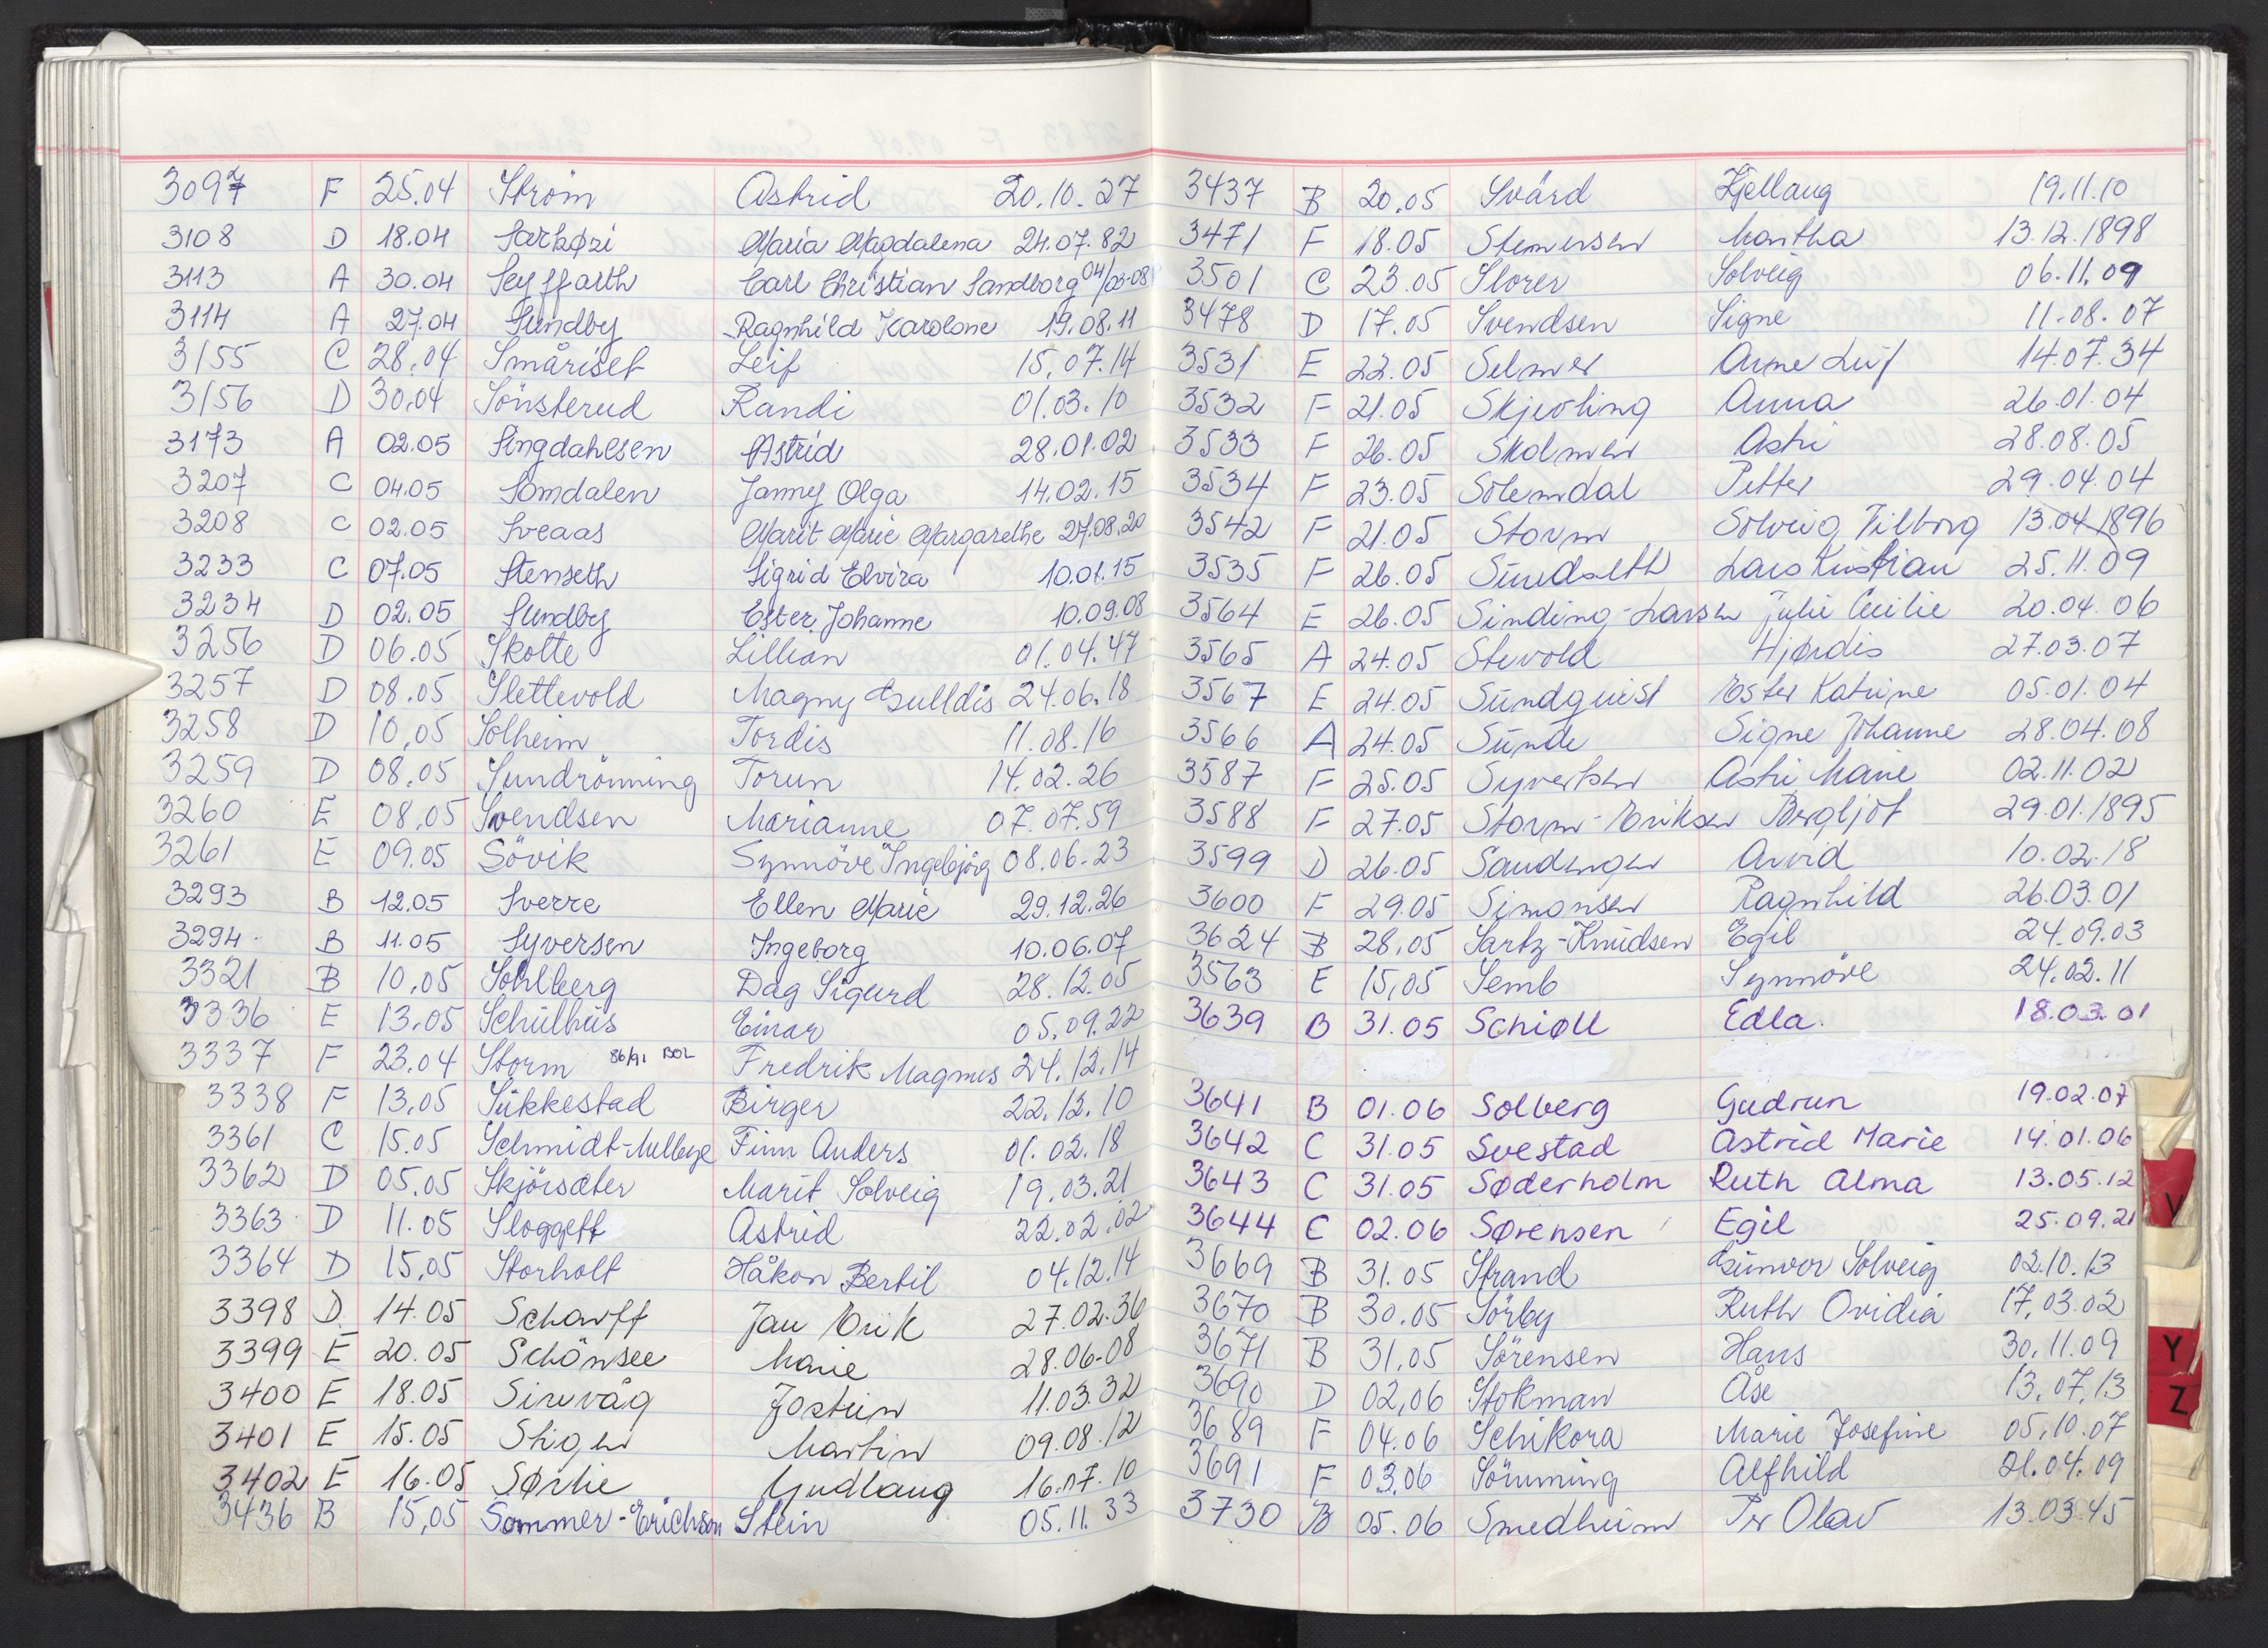 3097 F 25.04 Ström Astrid 20.10.27
3108 D 18.04 Sarkøzi Maria Magdalena 24.07.82
3113 A 30.04 Seyffarth Carl Christian Sandborg 04/03-08
3114 A 27.04 Sundby Ragnhild Karolone 19.08.11
3155 C 28.04 Småriset Leif 15.07.14
3156 D 30.04 Sönsterud Randi 01.03.10
3173 A 02.05 Singdahlsen Astrid 28.01.02
3207 C 04.05 Somdalen Janny Olga 14.02.15
3208 C 02.05 Sveaas Marit Marie Margarethe 27.08.20
3233 C 07.05 Stenseth Sigrid Elvira 10.01.15
3234 D 02.05 Sundby Ester Johanne 10.09.08
3256 D 06.05 Skotte Lillian 01.04.47
3257 D 08.05 Slettevold Magny Gulldis 24.06.18
3258 D 10.05 Solheim Tordis 11.08.16
3259 D 08.05 Sundrönning Torun 14.02.26
3260 E 08.05 Svendsen Marianne 07.07.59
3261 E 09.05 Sövik Synnöve Ingebjörg 08.06.23
3293 B 12.05 Sverre Ellen Marie 29.12.26
3294 B 11.05 Syversen Ingeborg 10.06.07
3321 B 10.05 Sohlberg Dag Sigurd 28.12.05
3336 E 13.05 Schulhus Einar 05.09.22
3337 F 23.04 Storm 86/91 BOL Fredrik Magnus 24.12.14
3338 F 13.05 Sukkestad Birger 22.12.10
3361 C 15.05 Schmidt-Melbye Finn Anders 01.02.18
3362 D 05.05 Skjörsæter Marit Solveig 19.03.21
3363 D 11.05 Sloggett Astrid 22.02.02
3364 D 15.05 Storholt Håkon Bertil 04.12.14
3398 D 14.05 Scharff Jan Erik 27.02.36
3399 E 20.05 Schönsee Marie 28.06.08
3400 E 18.05 Sirevåg Jostein 11.03.32
3401 E 15.05 Stigen Martin 09.08.12
3402 E 16.05 Sørlie Gudlaug 16.07.10
3436 B 15.05 Sommer-Erichson Stein 05.11.33
3437 B 20.05 Svärd Kjellaug 19.11.10
3471 F 18.05 Stemersen Martha 13.12.1898
3501 C 23.05 Storer Solveig 06.11.09
3478 D 17.05 Svendsen Signe 11.08.07
3531 E 22.05 Selmer Arne Leif 14.07.34
3532 F 21.05 Skjevling Anna 26.01.04
3533 F 26.05 Skolmen Astri 28.08.05
3534 F 23.05 Solemdal Petter 29.04.04
3542 F 21.05 Storm Solveig Tilborg 13.04.1896
3535 F 26.05 Sundseth Lars Kristian 25.11.09
3564 E 26.05 Sinding-Larsen Julie Cecilie 20.04.06
3565 A 24.05 Stuvold Hjørdis 27.03.07
3567 E 24.05 Sundquist Ester Katrine 05.01.04
3566 A 24.05 Sunde Signe Johanne 28.04.08
3587 F 25.05 Syvertsen Astri Marie 02.11.02
3588 F 27.05 Storm-Eriksen Bergljot 29.01.1895
3599 D 26.05 Sandengen Arvid 10.02.18
3600 F 29.05 Simonsen Ragnhild 26.03.01
3624 B 28.05 Sartz-Knudsen Egil 24.09.03
3563 E 15.05 Semb Synnöve 24.02.11
3639 B 31.05 Schiøll Edla 18.03.01
3641 B 01.06 Solberg Gudrun 19.02.07
3642 C 31.05 Svestad Astrid Marie 14.01.06
3643 C 31.05 Søderholm Ruth Alma 13.05.12
3644 C 02.06 Sørensen Egil 25.09.21
3669 B 31.05 Strand Gunvor Solveig 02.10.13
3670 B 30.05 Sörby Ruth Ovidia 17.03.02
3671 B 31.05 Sörensen Hans 30.11.09
3690 D 02.06 Stokman Åse 13.07.13
3689 F 04.06 Schikora Marie Josefine 05.10.07
3691 F 03.06 Sömming Alfhild 21.04.09
3730 B 05.06 Smedheim Per Olav 13.03.45
V
Y
Z